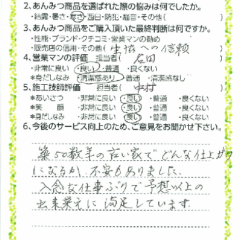 2.あんみつ商品を選ばれた際の悩みは何でしたか。
・結露・暑さ・寒さ・西日・防犯・騒音・その他( )
3.あんみつ商品をご購入頂いた最終判断は何ですか。
・性能・ブランド・クチコミ・営業マンの勧め
・販売店の信用・その他( 生協への信頼
4.営業マンの評価 担当者( 石田
・非常に良い ・良い ・普通 ・良くない
*身だしなみ ・清潔感あり ・普通 ・清潔感なし
5.施工技師評価 担当者( 中村
*あいさつ ・非常に良い ・良い ・普通 ・良くない
*笑顔 ・非常に良い ・良い ・普通 ・良くない
*身だしなみ ・非常に良い ・良い ・普通 ・良くない
6.今後のサービス向上のため、ご意見をお聞かせ下さい。
築50数年の古い家でどんな仕上り
になるか、不安もありました。
入念な仕事ぶりで予想以上の
出来栄えに満足しています。